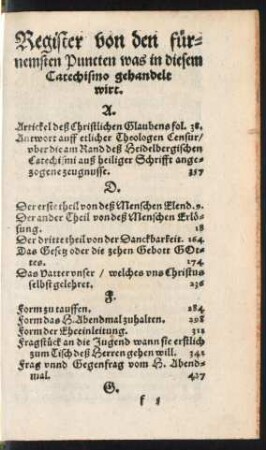 Register von den für-
nemsten Puncten was in diesem
Catechismo gehandelt
wirt.
A.
Artickel deß Christlichen Glaubens fol. 38.
Antwort auff etlicher Theologen Censur/
vber die am Rand deß Heidelbergischen
Catechismi auß heiliger Schrifft ange-
zogene zeugnusse. 357
D.
Der erste theil von deß Menschen Elend. 9.
Der ander Theil von deß Menschen Erlö-
sung. 18
Der dritte theil von der Danckbarkeit. 164.
Das Gesetz oder die zehen Gebott GOt-
tes. 174.
Das Vatter vnser / welches vns Christus
selbst gelehret. 236
F.
Form zu tauffen. 284.
Form das H. Abendmal zuhalten. 298
Form der Eheeinleitung. 312
Fragstück an die Jugend wann sie erstlich
zum Tisch deß Herren gehen will. 342
Frag vnnd Gegenfrag vom H. Abend-
mal. 427
G.
f 5